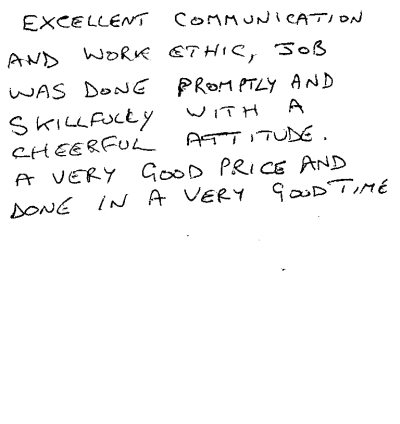 EXCELLENT COMMUNICATION
AND WORK ETHIC, JOB
WAS DONE PROMPTLY AND
SKILLFULLY WITH A
CHEERFUL ATTITUDE.
A VERY GOOD PRICE AND
DONE IN A VERY GOOD TIME